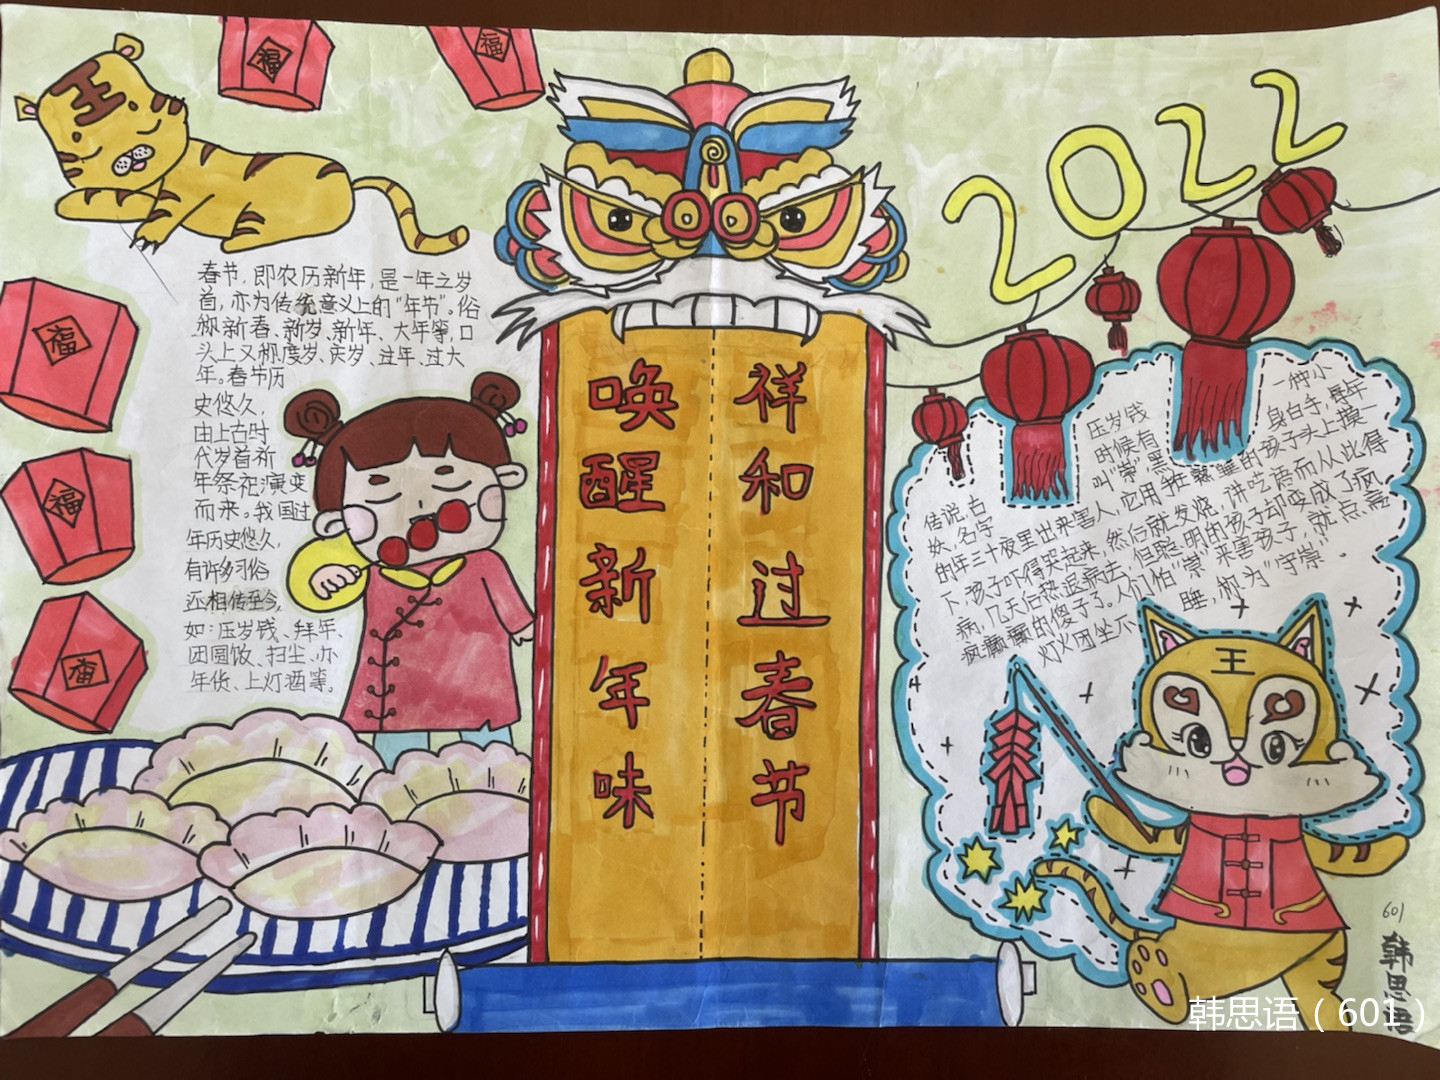 王
福
福
福
福
福
春节,即农历新年,是一年之岁
首,亦为传统意义上的“年节”。俗
称新春、新岁、新年、大年等,口
头上又称度岁、庆岁、过年、过大
年。春节历
史悠久,
由上古时
代岁首祈
年祭祀演变
而来。我国过
年历史悠久,
有许多习俗
还相传至今。
如:压岁钱、拜年、
团圆饭、扫尘、办
年货、上灯酒等。
唤醒新年味
祥和过春节
2022
传说,古
压岁钱
时候有
一种小
妖,名字
叫“祟”黑
身白手,每年
的年三十夜里出来害人,它用手在熟睡的孩子头上摸一
下,孩子吓得哭起来,然后就发烧,讲呓语而从此得
病,几天后热退病去,但聪明的孩子却变成了疯
疯癫癫的傻子了。人们怕“祟”来害孩子,就点亮
灯火团坐不
睡,称为“守祟”。
王
601
韩思语
韩思语(601)